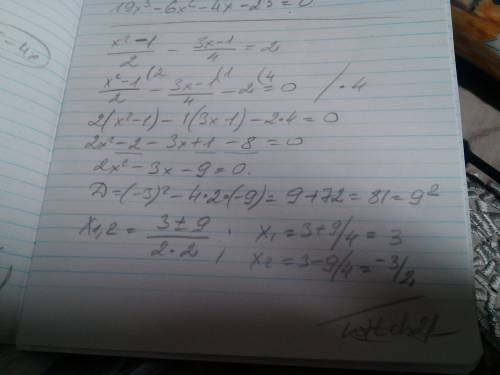 19x³-6x²-4x-25=0
-4x
x²-1/2 - 3x-1/4 = 2
x²-1(2/2 - 3x-1(1/4 - 2(4 = 0 /·4
2(x²-1)-1(3x-1)-2·4=0
2x²-2-3x+1-8=0
2x²-3x-9=0.
D=(-3)²-4·2·(-9)=9+72=81=9²
X₁,₂=3±9/2·2; x₁=3+9/4=3
x₂=3-9/4=-3/2